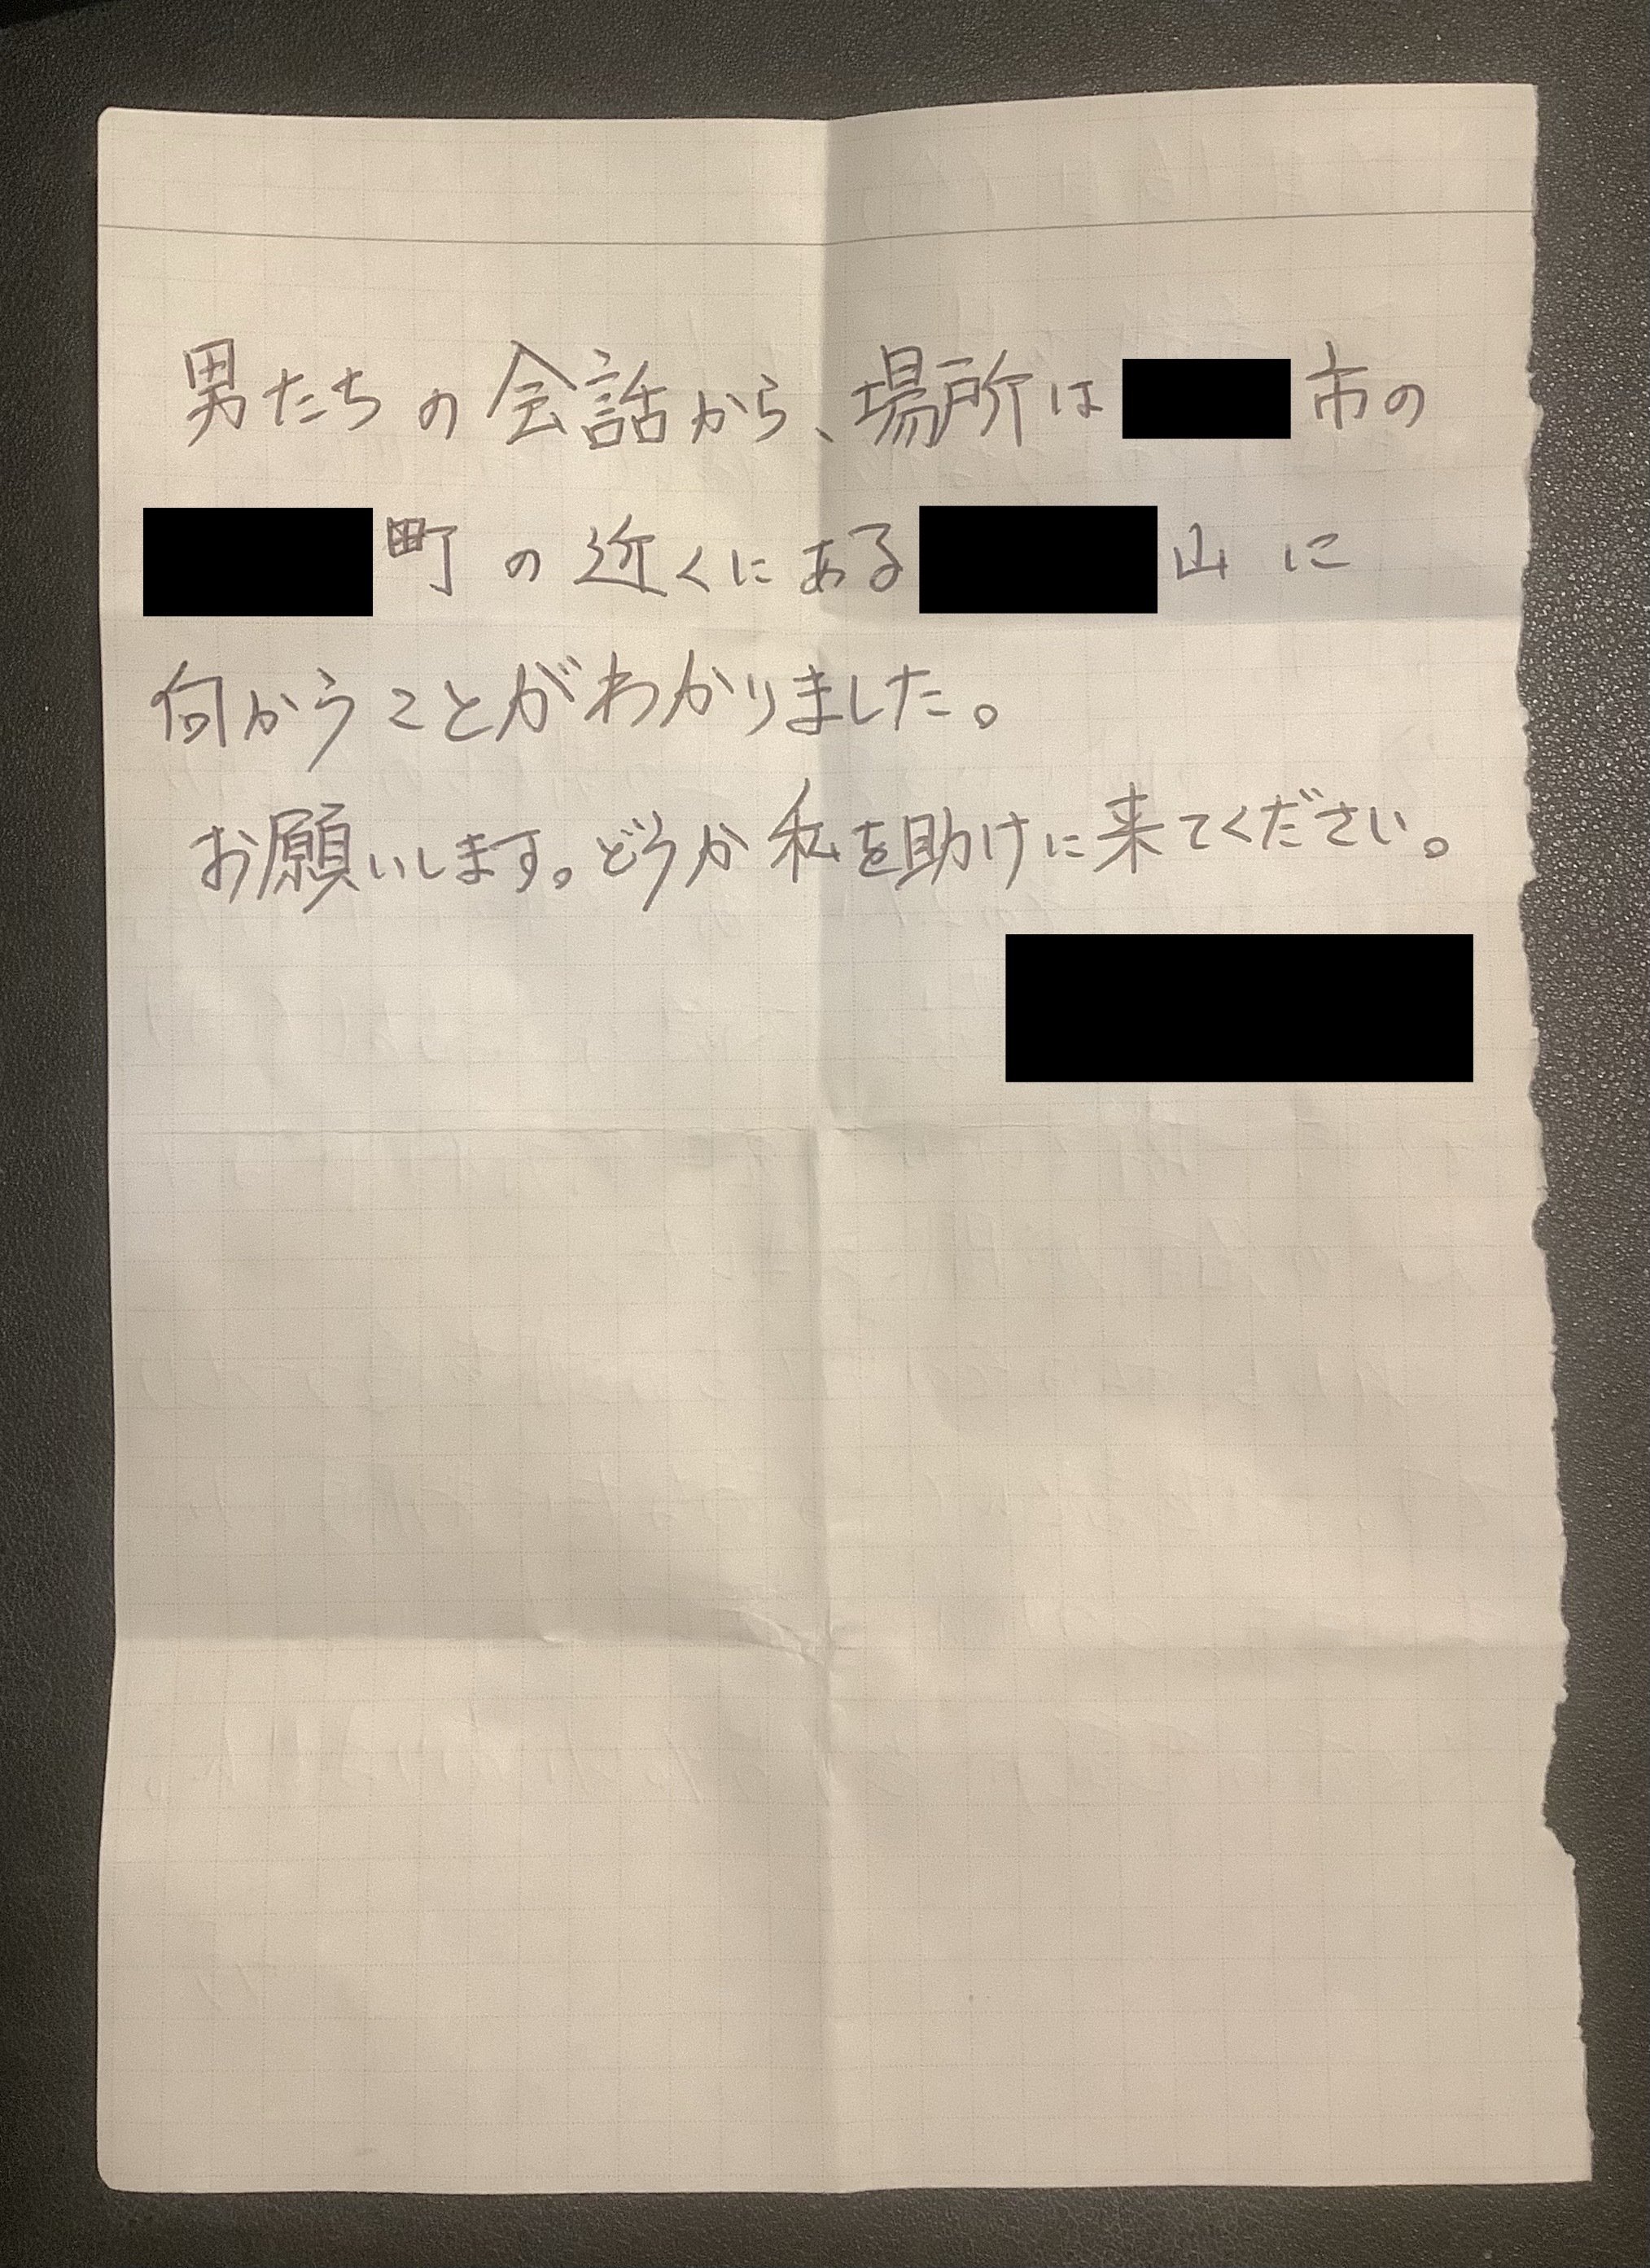 男たちの会話から、場所は市の
町の近くにある山に
向かうことがわかりました。
お願いします。どうか私を助けに来てください。